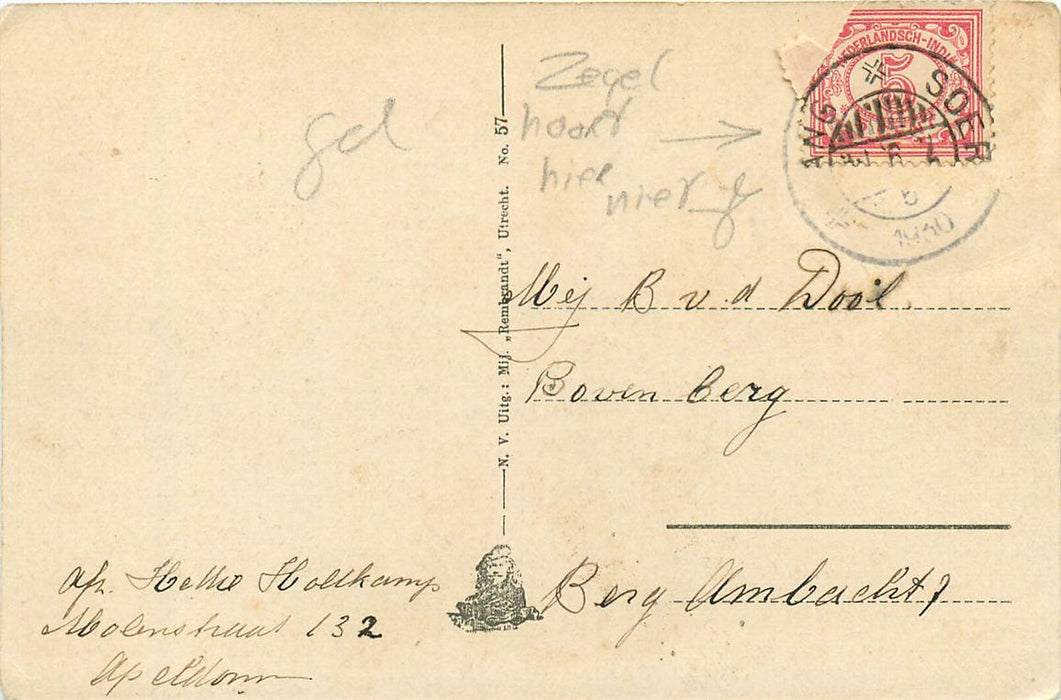 gel
Zegel
hoort
hier
niet
NEDERLANDSCH-INDI
5
SOER
1910
N. V. Uitg.: Mij. „Rembrandt“, Utrecht. No. 57
Mej B v. d Dool
Boven berg
Berg Ambacht
afz. Holtkamp
Molenstraat 132
Apeldoorn